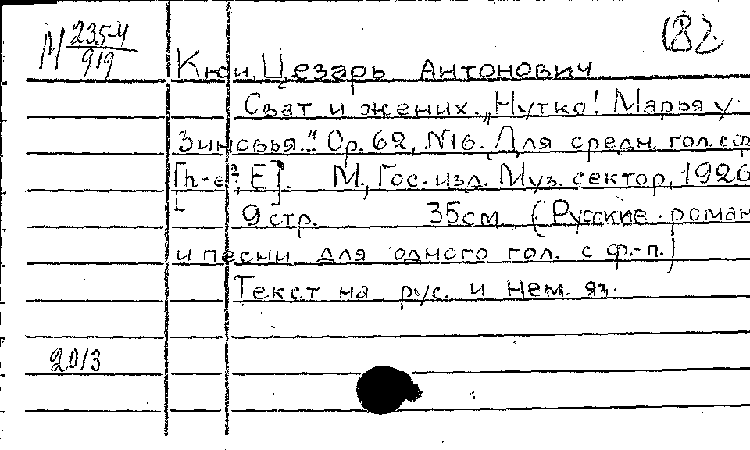 М 235-4
919
182.
Кюи, Цезарь Антонович
Сват и жених. „Нутко! Марья у
Зиновья..." Ор. 62, №16. Для средн. гол. с ф
[h-e², E]. М., Гос. изд. Муз. сектор, 1926
9 стр. 35 см. (Русские роман
и песни для одного гол. с ф.-п.)
Текст на рус. и нем. яз.
2013